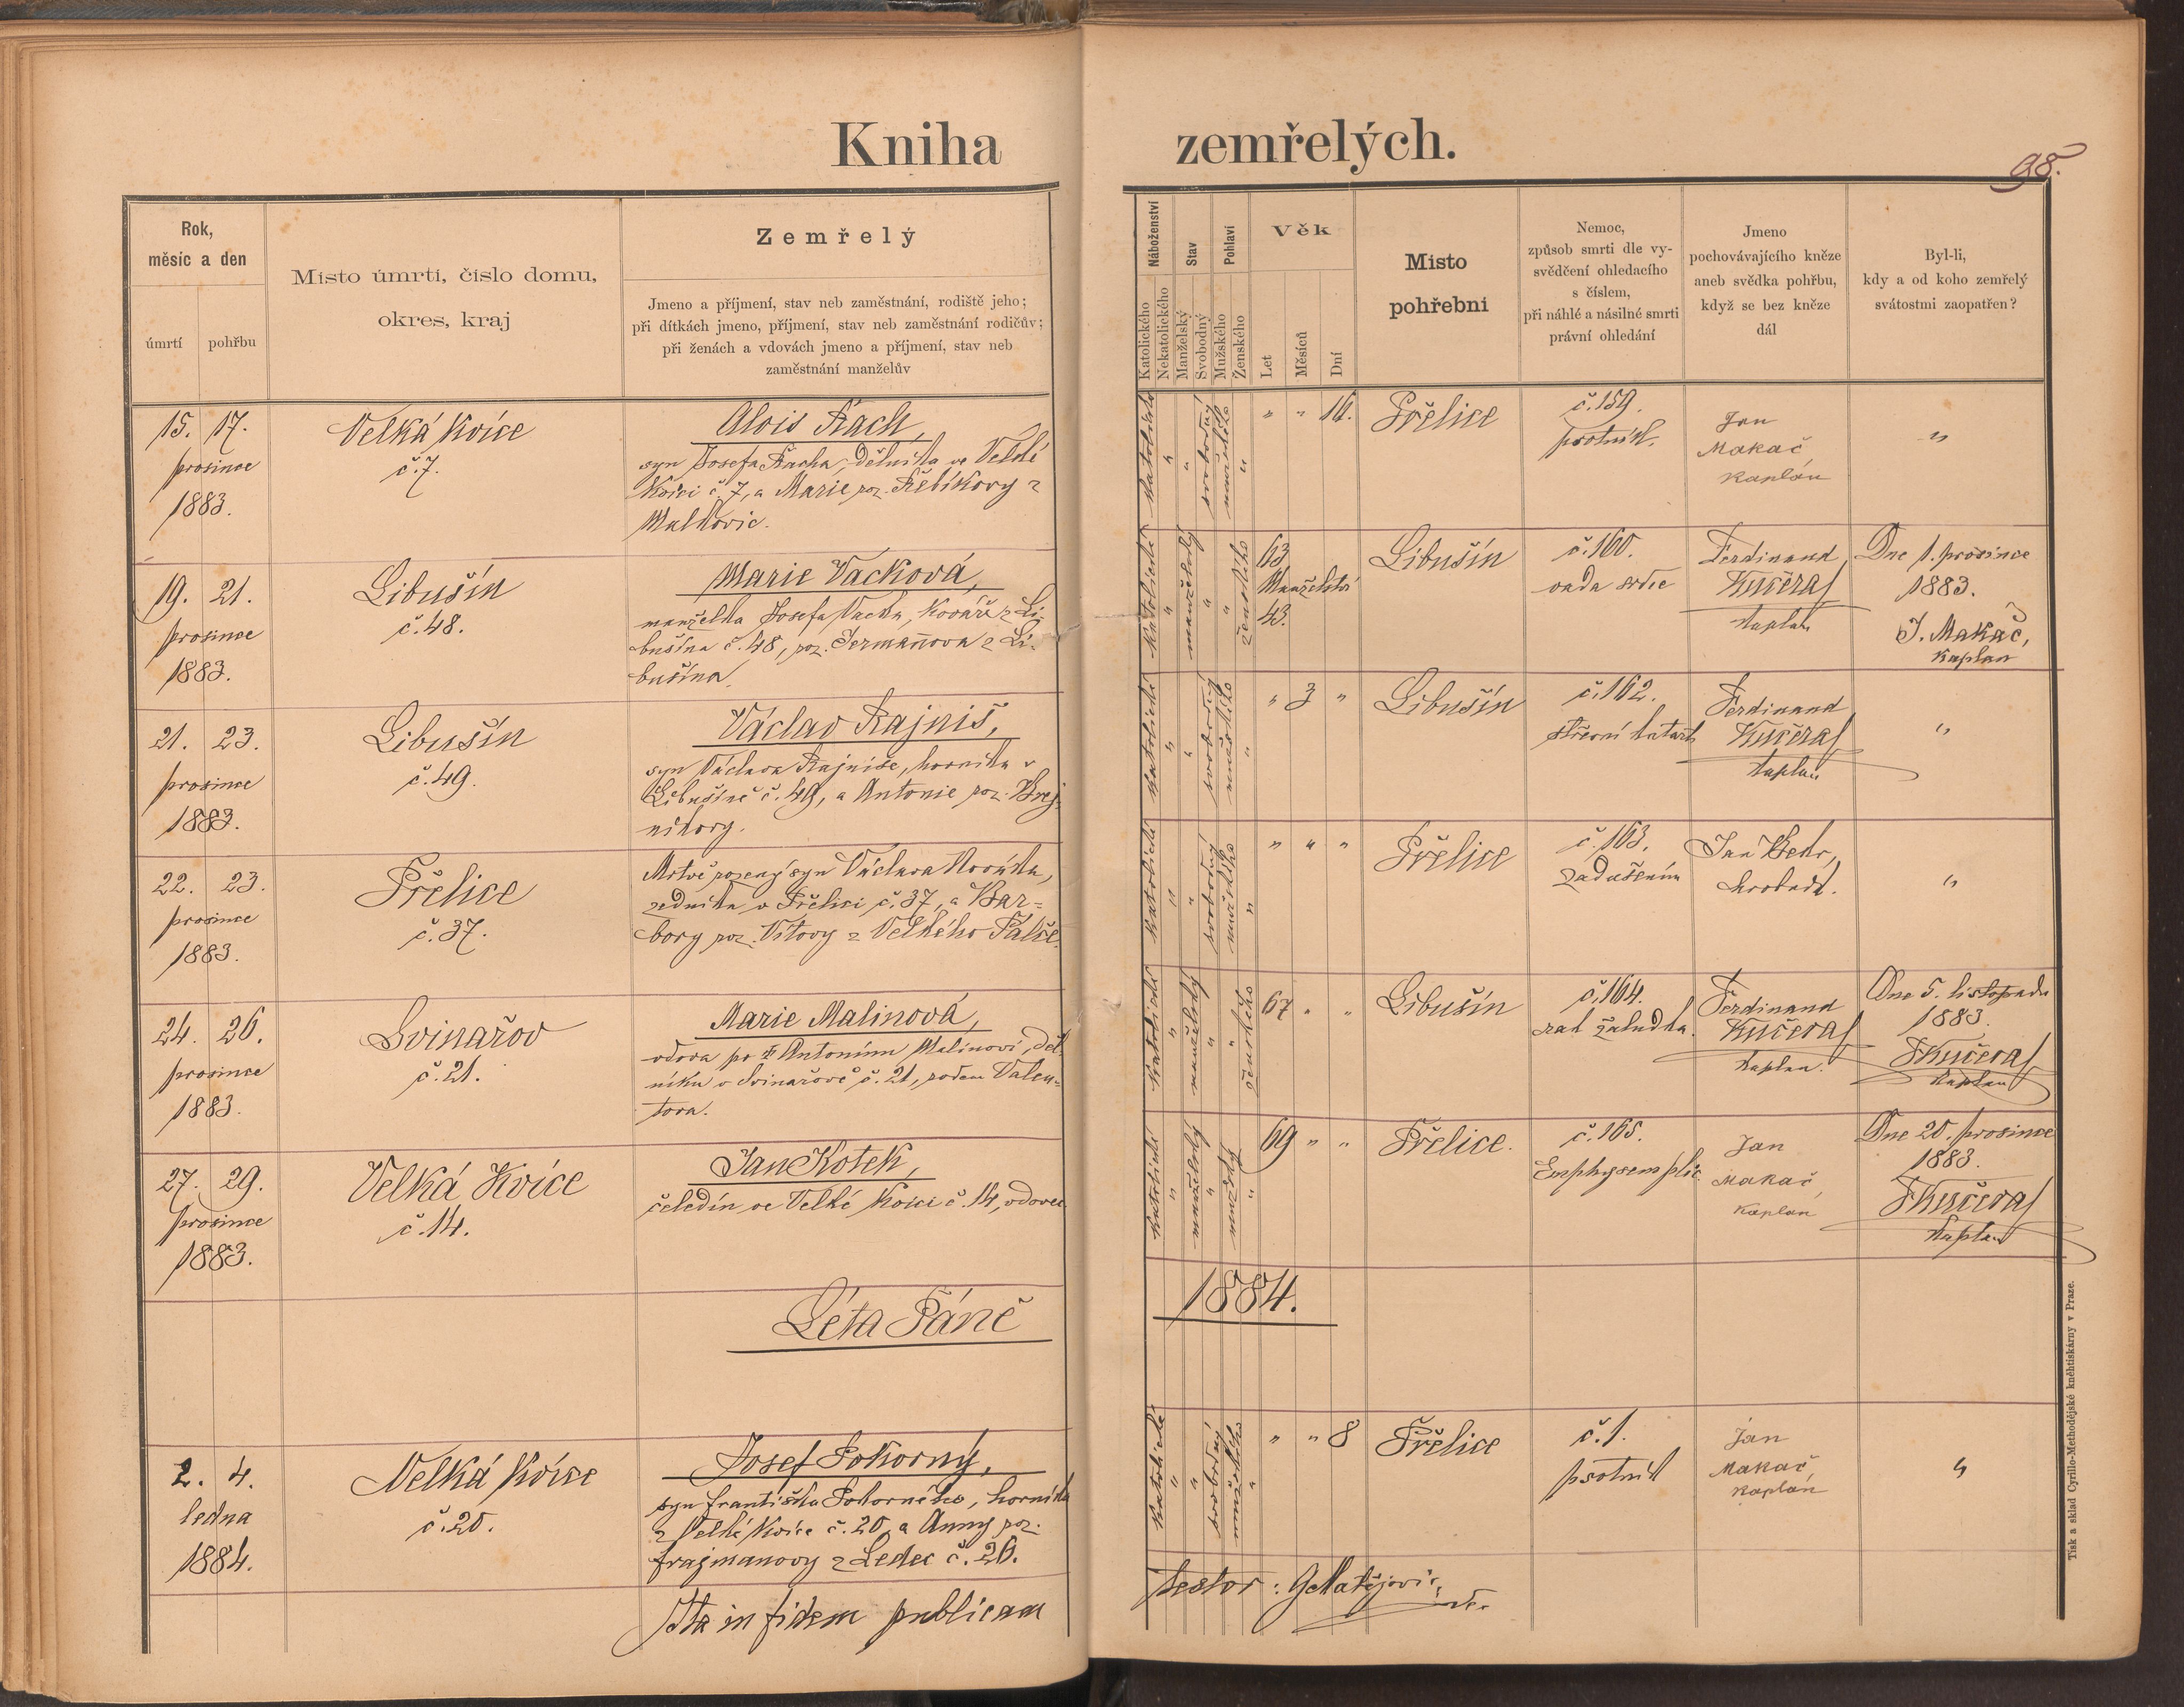 Kniha zemřelých.
98.
Rok,
měsíc a den
úmrtí
pohřbu
Místo úmrtí, číslo domu,
okres, kraj
Zemřelý
Jmeno a příjmení, stav neb zaměstnání, rodiště jeho;
při dítkách jmeno, příjmení, stav neb zaměstnání rodičův;
při ženách a vdovách jmeno a příjmení, stav neb
zaměstnání manželův
Náboženství
Katolického
Nekatolického
Stav
Manželský
Svobodný
Pohlaví
Mužského
Ženského
Věk
Let
Měsíců
Dní
Místo
pohřební
Nemoc,
způsob smrti dle vy-
svědčení ohledacího
s číslem,
při náhlé a násilné smrti
právní ohledání
Jmeno
pochovávajícího kněze
aneb svědka pohřbu,
když se bez kněze
dál
Byl-li,
kdy a od koho zemřelý
svátostmi zaopatřen?
15. 17.
prosince
1883.
Velká Kvíce
č. 7.
Alois Rach,
syn Josefa Racha, dělníka ve Velké
Kvíci č. 7, a Marie roz. Řebíkovy z
Malkovic.
katolické
"
"
svobodný
mužského
"
" " 14.
Přelíce
č. 159.
psotník.
Jan
Makač,
kaplan
"
19. 21.
prosince
1883.
Libušín
č. 48.
Marie Vacková,
manželka Josefa Vacka, kováře z Li-
bušína č. 48, roz. Jermanova z Li-
bušína.
katolické
"
manželský
"
"
ženského
63
Manželství
43.
Libušín
č. 160.
vada srdce
Ferdinand
Kučera
kaplan
Dne 1. prosince
1883.
J. Makač,
kaplan
21. 23.
prosince
1883.
Libušín
č. 49.
Václav Rajniš,
syn Václava Rajniše, horníka v
Libušíně č. 49, a Antonie roz. Brej-
níkovy.
katolické
"
"
svobodný
mužského
"
" 3 "
Libušín
č. 162.
střevní katarh
Ferdinand
Kučera
kaplan
"
22. 23.
prosince
1883.
Přelíce
č. 37.
Mrtvě rozený syn Václava Nováka,
zedníka v Přelíci č. 37, a Bar-
bory roz. Vítovy z Velkého Pálče.
katolické
"
"
svobodný
mužského
"
" " "
Přelíce
č. 163.
zadušením
Jan Bedr,
hrobař.
"
24. 26.
prosince
1883.
Svinařov
č. 21.
Marie Malinová,
vdova po † Antonínu Malinovi, děl-
níku v Svinařově č. 21, rodem Valen-
tova.
katolické
"
manželský
"
"
ženského
67 " "
Libušín
č. 164.
rak žaludka.
Ferdinand
Kučera
kaplan.
Dne 5. listopadu
1883.
F Kučera
kaplan
27. 29.
prosince
1883.
Velká Kvíce
č. 14.
Jan Kotek,
čeledín ve Velké Kvíci č. 14, vdovec
katolické
"
manželský
"
mužský
"
69 " "
Přelíce.
č. 165.
Emphysem plic.
Jan
Makač,
kaplan
Dne 20. prosince
1883.
F Kučera
kaplan
Léta Páně 1884.
2. 4.
ledna
1884.
Velká Kvíce
č. 20.
Josef Pokorný,
syn Františka Pokorného, horníka
z Velké Kvíce č. 20, a Anny roz.
Frajmanovy z Ledec č. 26.
katolické
"
"
svobodný
mužského
"
" " 8
Přelíce
č. 1.
psotník
Jan
Makač
kaplan
"
Ita in fidem publicam
testor: G. Matějovic,
Tisk a sklad Cyrillo-Methodějské knihtiskárny v Praze.